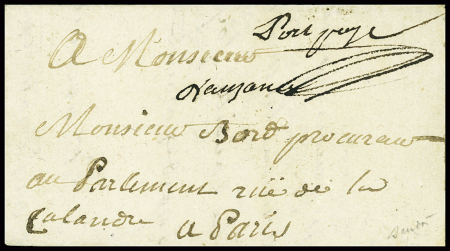 Port paye
A Monsieur
Monsieur Bord procureur
au Parlement rüe de la
Calandre a Paris